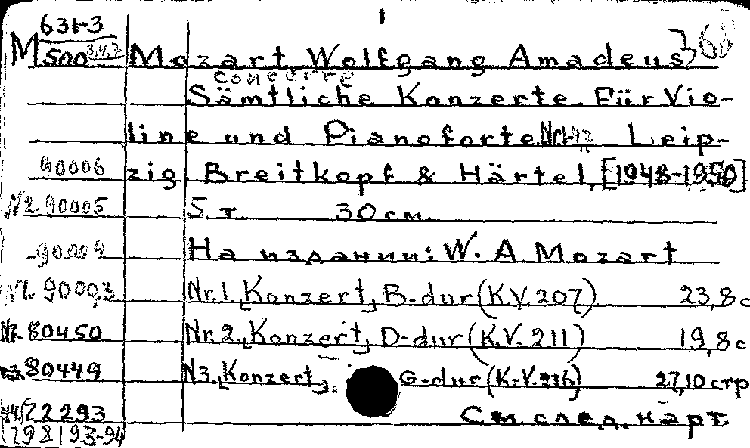 631-3
M 500 Mozart Wolfgang Amadeus
concerre
Sämtliche Konzerte Für Vio-
line und Pianoforte Leip-
90006 zig, Breitkopf & Härtel, [1948-1950]
N2. 90005 5 т. 30 см
90009 На издании: W. A Mozart
N1. 90003 Nr. 1 [Konzert] B-dur (K.V. 207) 23,8 с
Nr. 80450 Nr 2 [Konzert] D-dur (K.V. 211) 19,8 с
80449 N3. [Konzert] G-dur (K.V. 216) 27,10 стр
72293 См след. карт.